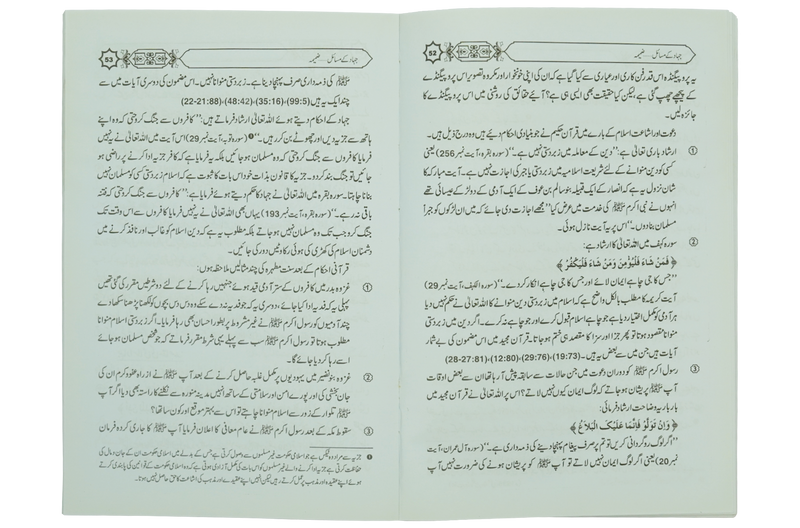 جہاد کے مسائل ۔۔۔ ضمیمہ
52
یہ پروپیگنڈہ اس قدر فن کاری اور عیاری سے کیا گیا ہے کہ ان کی اپنی خونخوار اور مکروہ تصویر اس پروپیگنڈے
کے پیچھے چھپ گئی ہے لیکن کیا حقیقت بھی ایسی ہی ہے؟ آئیے حقائق کی روشنی میں اس پروپیگنڈے کا
جائزہ لیں۔
دعوت اور اشاعت اسلام کے بارے میں قرآن حکیم نے جو بنیادی احکام دیئے ہیں وہ درج ذیل ہیں۔
① ارشاد باری تعالیٰ ہے: "دین کے معاملہ میں زبردستی نہیں ہے۔" (سورہ بقرہ، آیت نمبر 256) یعنی
کسی کو دین منوانے کے لئے شریعت اسلامیہ میں زبردستی یا جبر کی اجازت نہیں ہے۔ آیت مبارکہ کا
شان نزول یہ ہے کہ انصار کے ایک قبیلہ بنو سالم بن عوف کے ایک آدمی کے دو لڑکے عیسائی تھے
انہوں نے نبی اکرم ﷺ کی خدمت میں عرض کیا "مجھے اجازت دی جائے کہ میں ان لڑکوں کو جبراً
مسلمان بنا دوں۔" اس پر یہ آیت نازل ہوئی۔
② سورہ کہف میں اللہ تعالیٰ کا ارشاد ہے:
﴿ فَمَنْ شَاءَ فَلْيُؤْمِنْ وَمَنْ شَاءَ فَلْيَكْفُرْ ﴾
"جس کا جی چاہے ایمان لائے اور جس کا جی چاہے انکار کر دے۔" (سورہ الکہف، آیت نمبر 29)
آیت کریمہ کا مطلب بالکل واضح ہے کہ اسلام میں زبردستی دین منوانے کا اللہ تعالیٰ نے حکم نہیں دیا
ہر آدمی کو مکمل اختیار دیا ہے جو چاہے اسلام قبول کرے اور جو چاہے نہ کرے۔ اگر دین میں زبردستی
منوانا مقصود ہوتا تو پھر جزا اور سزا کا مقصد ہی ختم ہو جاتا۔ قرآن مجید میں اس مضمون کی بے شمار
آیات ہیں جن میں سے بعض یہ ہیں۔ (19:73)، (29:76)، (12:80)، (28-27:81)
③ رسول اکرم ﷺ کو دوران دعوت میں جن حالات سے سابقہ پیش آ رہا تھا ان سے بعض اوقات
آپ ﷺ پریشان ہو جاتے کہ لوگ ایمان کیوں نہیں لاتے؟ اس پر اللہ تعالیٰ نے قرآن مجید میں
بار بار یہ وضاحت ارشاد فرمائی:
﴿ وَإِنْ تَوَلَّوْا فَإِنَّمَا عَلَيْكَ الْبَلَاغُ ﴾
"اگر لوگ روگردانی کریں تو تم پر صرف پیغام پہنچا دینے کی ذمہ داری ہے۔" (سورہ آل عمران، آیت
نمبر 20) یعنی اگر لوگ ایمان نہیں لاتے تو آپ ﷺ کو پریشان ہونے کی ضرورت نہیں آپ
جہاد کے مسائل ۔۔۔ ضمیمہ
53
ﷺ کی ذمہ داری صرف پہنچا دینا ہے۔ زبردستی منوانا نہیں۔ اس مضمون کی دوسری آیات میں سے
چند ایک یہ ہیں (99:5)، (35:16)، (48:42)، (22-21:88)
جہاد کے احکام دیتے ہوئے اللہ تعالیٰ ارشاد فرماتے ہیں: "کافروں سے جنگ کرو حتی کہ وہ اپنے
ہاتھ سے جزیہ دیں اور چھوٹے بن کر رہیں۔"❶ (سورہ توبہ، آیت نمبر 29) اس آیت میں اللہ تعالیٰ نے یہ نہیں
فرمایا کافروں سے جنگ کرو حتی کہ وہ مسلمان ہو جائیں بلکہ یہ فرمایا ہے کہ کافر جزیہ ادا کرنے پر راضی ہو
جائیں تو جنگ بند کر دو۔ جزیہ کا قانون بذات خود اس بات کا ثبوت ہے کہ اسلام زبردستی کسی کو مسلمان نہیں
بنانا چاہتا۔ سورہ بقرہ میں اللہ تعالیٰ نے جہاد کا حکم دیتے ہوئے فرمایا ہے: "کافروں سے جنگ کرو حتی کہ فتنہ
باقی نہ رہے۔" (سورہ بقرہ، آیت نمبر 193) یہاں بھی اللہ تعالیٰ نے یہ نہیں فرمایا کافروں سے اس وقت تک
جنگ کرو جب تک وہ مسلمان نہیں ہو جاتے بلکہ مطلوب یہ ہے کہ دین اسلام کو غالب اور نافذ کرنے میں
دشمنان اسلام کی کھڑی کی ہوئی رکاوٹیں دور کی جائیں۔
قرآنی احکام کے بعد سنت مطہرہ کی چند مثالیں ملاحظہ ہوں:
① غزوہ بدر میں کافروں کے ستر آدمی قید ہوئے جنہیں رہا کرنے کے لئے دو شرطیں مقرر کی گئی تھیں
پہلی یہ کہ فدیہ ادا کیا جائے، دوسری یہ کہ جو فدیہ نہ دے سکے وہ دس دس بچوں کو لکھنا پڑھنا سکھا دے
چند آدمیوں کو رسول اکرم ﷺ نے غیر مشروط پر بطور احسان بھی رہا فرمایا۔ اگر زبردستی اسلام منوانا
مطلوب ہوتا تو رسول اکرم ﷺ سب سے پہلے یہی شرط مقرر فرماتے کہ جو شخص مسلمان ہو جائے
اسے رہا کر دیا جائے گا۔
② غزوہ بنو نضیر میں یہودیوں پر مکمل غلبہ حاصل کرنے کے بعد آپ ﷺ نے از راہ عفو و کرم ان کی
جان بخشی کی اور پورے امن اور سلامتی کے ساتھ انہیں مدینہ منورہ سے نکلنے کا راستہ بھی دیا اگر آپ
ﷺ تلوار کے زور سے اسلام منوانا چاہتے تو اس سے بہتر موقع اور کون سا تھا؟
③ سقوط مکہ کے بعد رسول اکرم ﷺ نے عام معافی کا اعلان فرمایا آپ ﷺ کا جاری کردہ فرمان
❶ جزیہ سے مراد وہ ٹیکس ہے جو اسلامی حکومت غیر مسلموں سے وصول کرتی ہے جس کے بدلے میں اسلامی حکومت ان کے جان و مال کی
حفاظت کرتی ہے جزیہ ادا کرنے والے غیر مسلموں کو اس بات کی مکمل آزادی ہوتی ہے کہ وہ اسلامی حکومت کے قوانین کی پابندی کرتے
ہوئے اپنے عقیدے اور مذہب پر عمل کرتے رہیں لیکن انہیں اپنے عقیدے اور مذہب کی اشاعت کا حق حاصل نہیں ہوتا۔